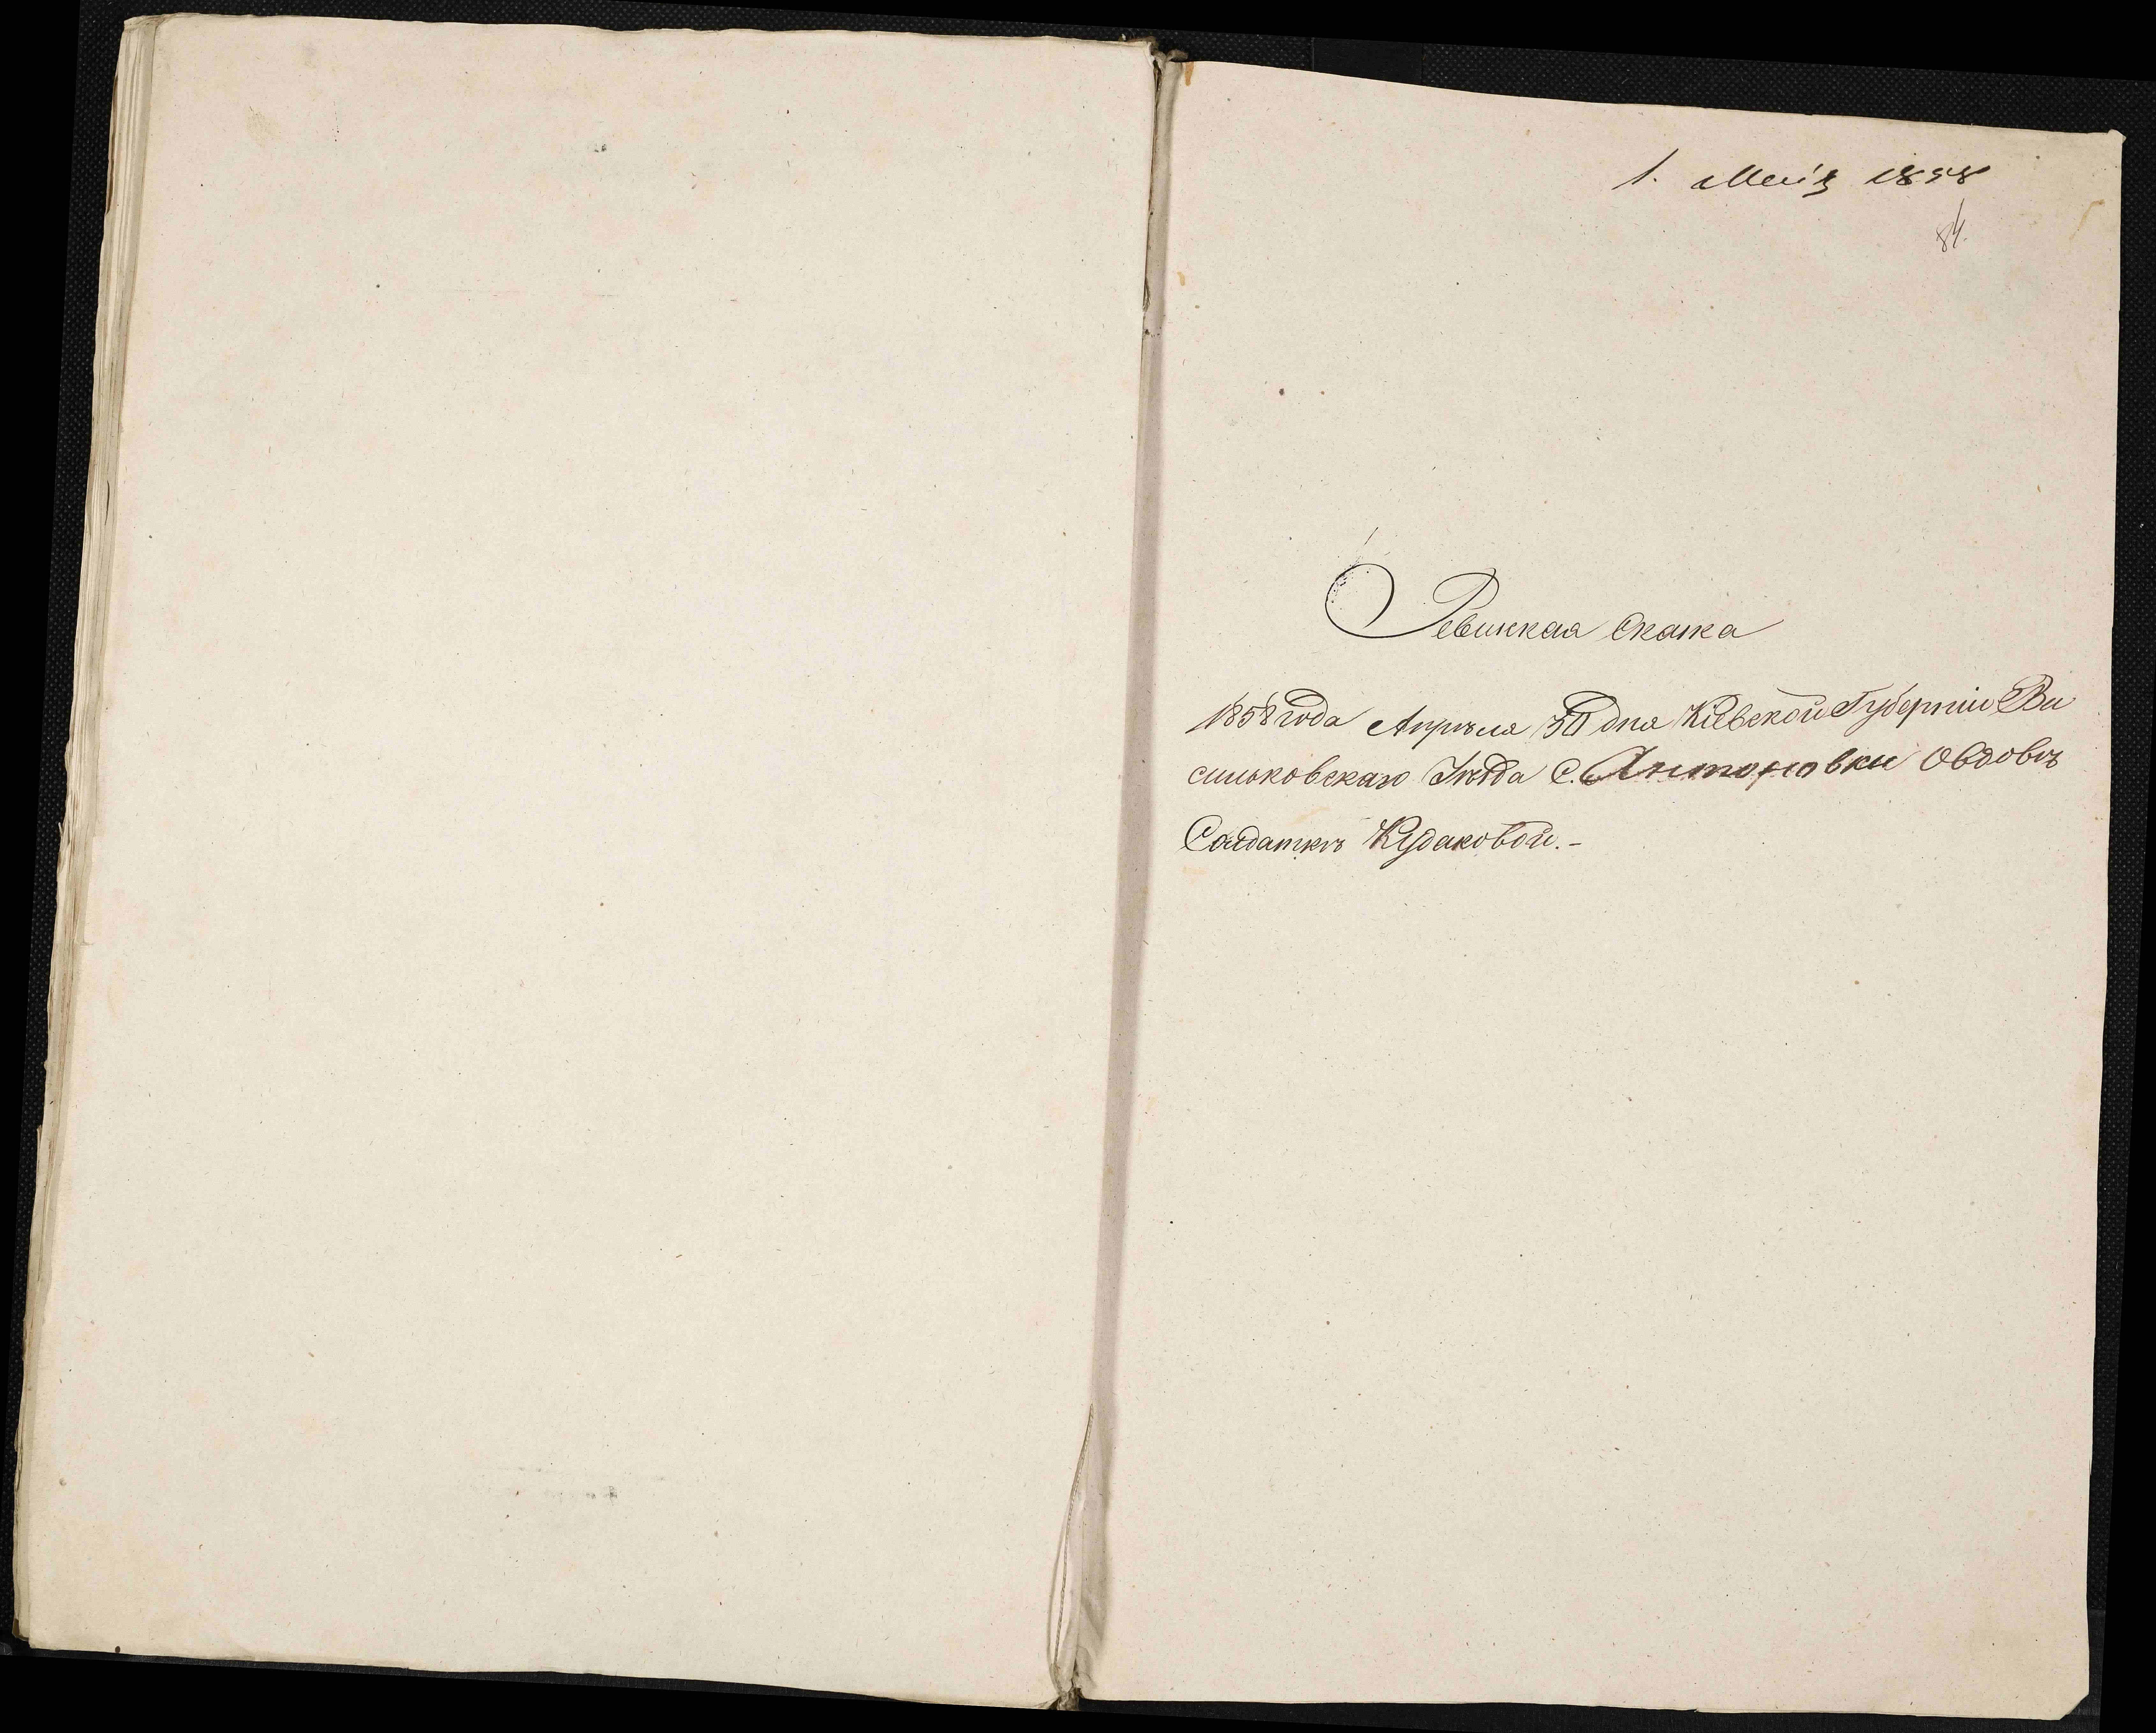 1. Маія 1858
84.
Ревизкая сказка
1858 года Апрѣля 30 дня Кіевской Губерніи Ва
сильковскаго Уѣзда С. Антоновки Овдовѣ
Солдаткѣ Кудаковой.-